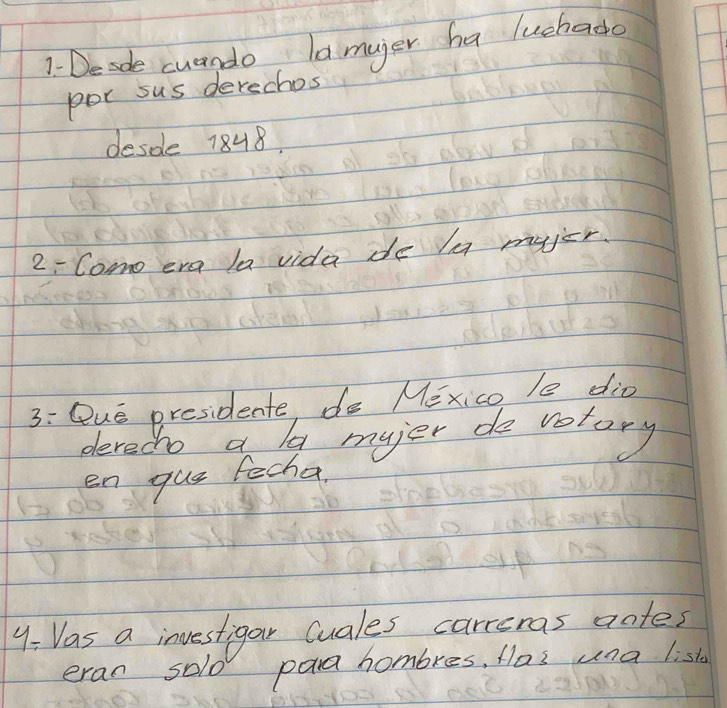 1-Desde cuando la mujer ha luchado
por sus derechos
desde 1848.
2-Como era la vida de la mujer.
3-Qué presidente, de México le dio
derecho a la mujer de votar y
en que fecha.
4-Vas a investigar cuales carreras antes
eran solo para hombres. Haz una lista